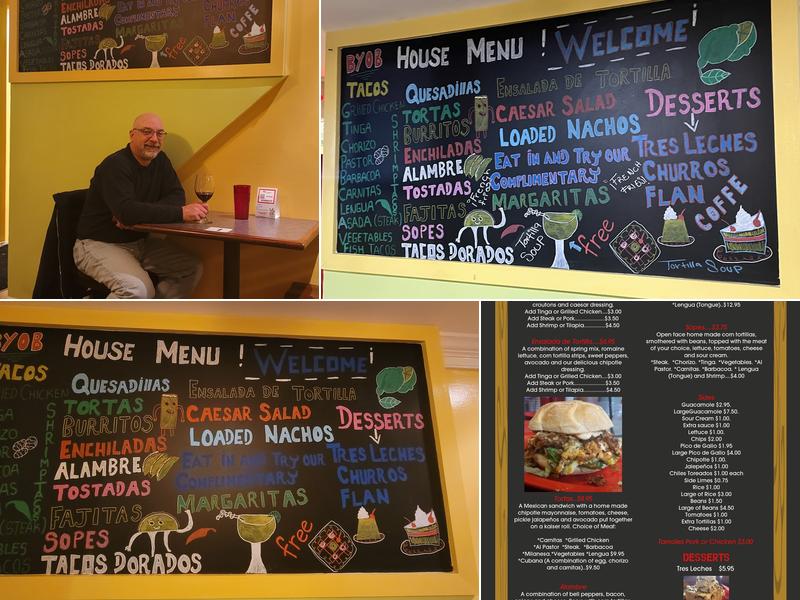 ENCHILADAS
ALAMBRE
TOSTADAS
SOPES
TACOS DORADOS
COMPLIMENTARY
MARGARITA
free
CHURROS
FLAN
COFFE
BYOB HOUSE MENU ! WELCOME !
TACOS
Grilled Chicken
TINGA
CHORIZO
PASTOR
BARBACOA
CARNITAS
LENGUA
ASADA (STEAK)
VEGETABLES
FISH TACOS
SHRIMP
QUESADILLAS
TORTAS
BURRITOS
ENCHILADAS
ALAMBRE
TOSTADAS
FAJITAS
SOPES
TACOS DORADOS
ENSALADA DE TORTILLA
CAESAR SALAD
LOADED NACHOS
EAT IN AND TRY OUR
COMPLIMENTARY
MARGARITAS
free
Tortilla Soup
¡FRENCH FRIES!
DESSERTS
TRES LECHES
CHURROS
FLAN
COFFE
Tortilla Soup
BYOB HOUSE MENU ! WELCOME !
TACOS
QUESADILLAS
TORTAS
BURRITOS
ENCHILADAS
ALAMBRE
TOSTADAS
FAJITAS
SOPES
TACOS DORADOS
ENSALADA DE TORTILLA
CAESAR SALAD
LOADED NACHOS
EAT IN AND TRY OUR
COMPLIMENTARY
MARGARITAS
free
DESSERTS
TRES LECHES
CHURROS
FLAN
croutons and caesar dressing.
Add Tinga or Grilled Chicken....$3.00
Add Steak or Pork................$3.50
Add Shrimp or Tilapia...............$4.50
Ensalada de Tortilla....$6.95
A combination of spring mix, romaine
lettuce, corn tortilla strips, sweet peppers,
avocado and our delicious chipotle
dressing.
Add Tinga or Grilled Chicken....$3.00
Add Steak or Pork................$3.50
Add Shrimp or Tilapia...............$4.50
Tortas...$8.95
A Mexican sandwich with a home made
chipotle mayonnaise, tomatoes, cheese,
pickle jalapeños and avocado put together
on a kaiser roll. Choice of Meat:
*Carnitas *Grilled Chicken
*Al Pastor *Steak. *Barbacoa
*Milanesa.*Vegetables *Lengua $9.95
*Cubana (A combination of egg, chorizo
and carnitas)..$9.50
Alambre
A combination of bell peppers, bacon,
*Lengua (Tongue)..$12.95
Sopes....$3.75
Open face home made corn tortillas,
smothered with beans, topped with the meat
of your choice, lettuce, tomatoes, cheese
and sour cream.
*Steak. *Chorizo. *Tinga. *Vegetables. *Al
Pastor. *Carnitas. *Barbacoa. * Lengua
(Tongue) and Shrimp....$4.00
Sides
Guacamole $2.95.
LargeGuacamole $7.50.
Sour Cream $1.00.
Extra sauce $1.00
Lettuce $1.00.
Chips $2.00
Pico de Gallo $1.95
Large Pico de Gallo $4.00
Chipotle $1.00.
Jalapeños $1.00
Chiles Toreados $1.00 each
Side Limes $0.75
Rice $1.00
Large of Rice $3.00
Beans $1.50
Large of Beans $4.50
Tomatoes $1.00
Extra Tortillas $1.00
Cheese $2.00
Tamales Pork or Chicken $3.00
DESSERTS
Tres Leches $5.95